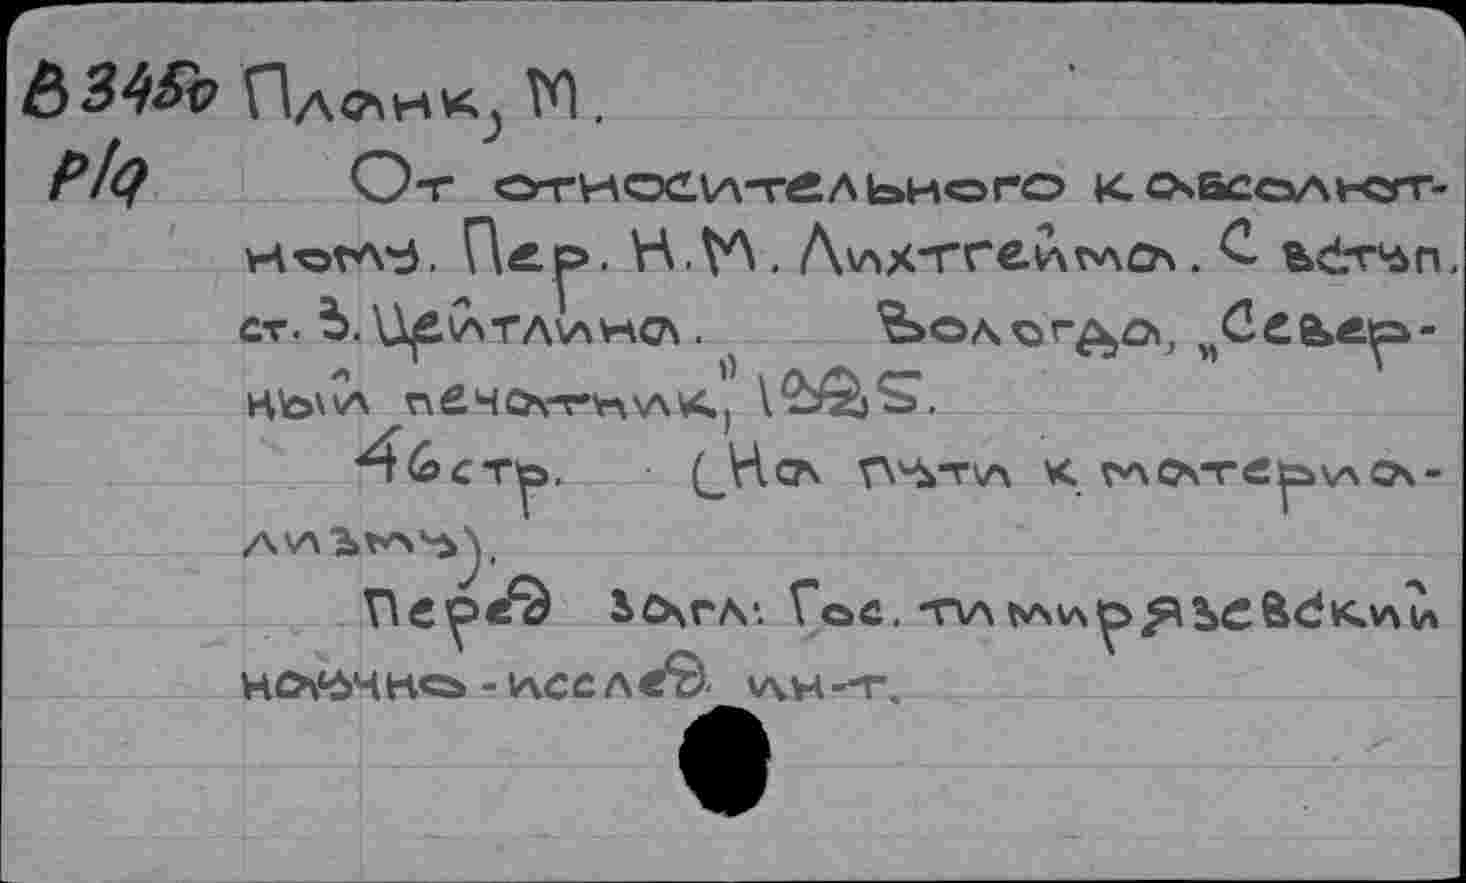 В3456 Планк, М.
P/q От относительного к абсолют-
ному. Пер. Н.М. Лихтгейма. С вступ.
ст. З. Цейтлина. Вологда, „Север-
ный печатник", 1925.
46стр. (На пути к материа-
лизму).
Перед загл: Гос. тимирязевский
научно-исслед. ин-т.